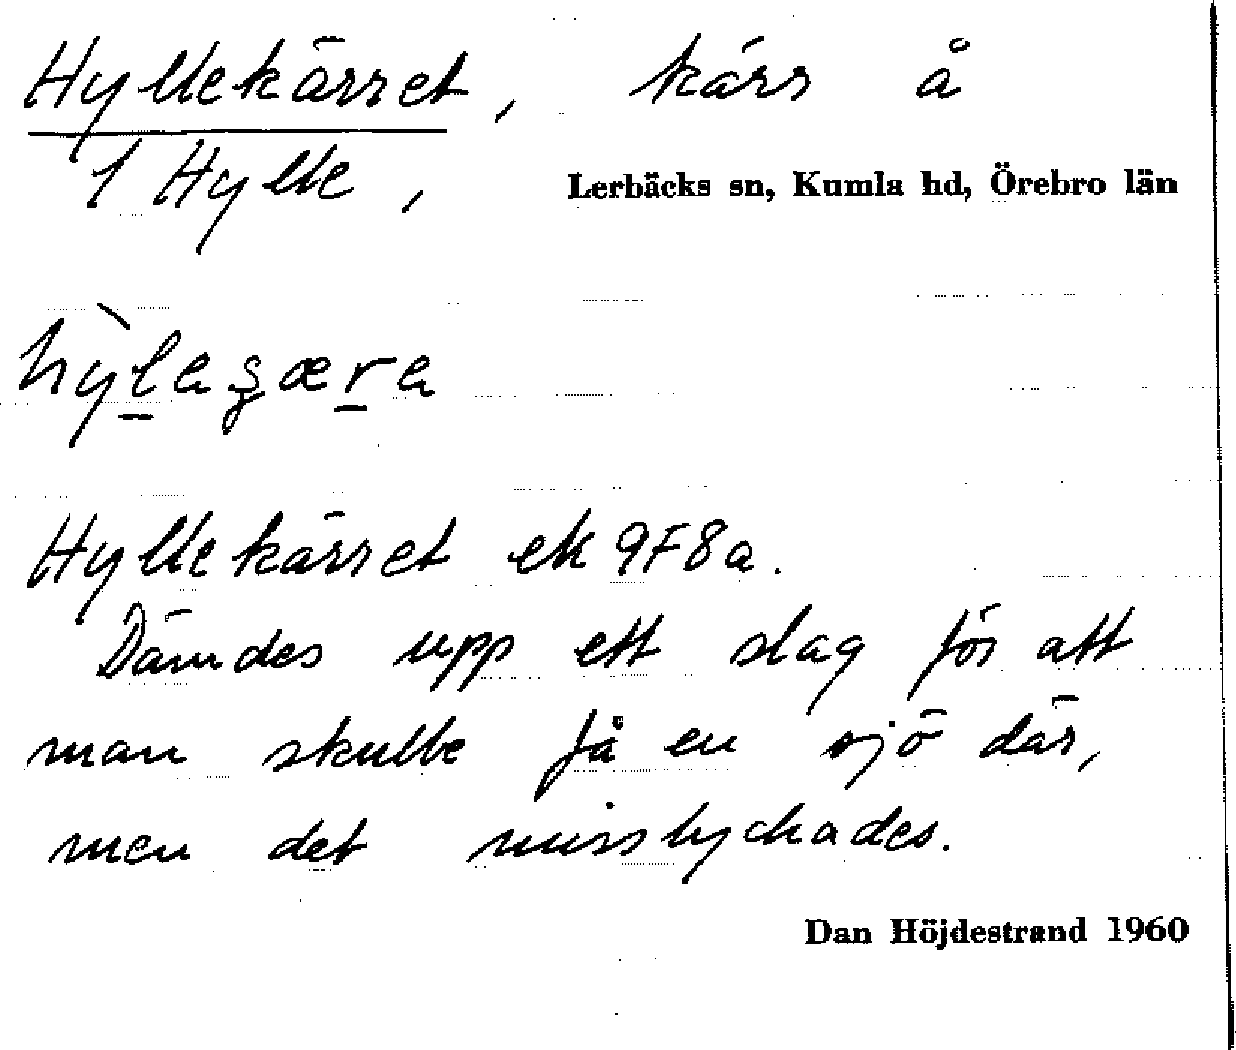 Hyllekärret, kärr å
1 Hylle, Lerbäcks sn, Kumla hd, Örebro län
hỳlaʂæra
Hyllekärret ek 9F8a.
Dämdes upp ett slag för att
man skulle få en sjö där,
men det misslyckades.
Dan Höjdestrand 1960